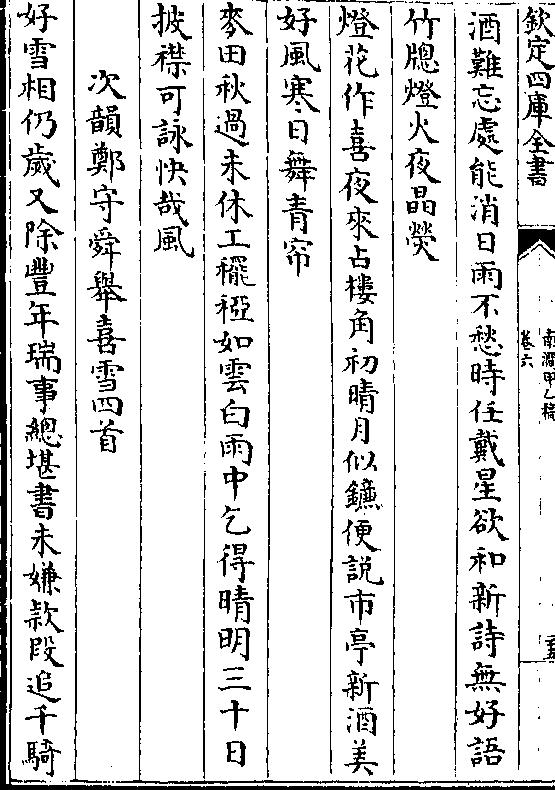 欽定四庫全書
南澗甲乙稿
卷六
酒難忘處能消日雨不愁時任戴星欲和新詩無好語
竹牕燈火夜晶熒
燈花作喜夜來占樓角初晴月似鐮便說市亭新酒美
好風寒日舞青帘
麥田秋過未休工䆉稏如雲白雨中乞得晴明三十日
披襟可詠快哉風
次韻鄭守舜舉喜雪四首
好雪相仍歲又除豐年瑞事總堪書未嫌款段追千騎